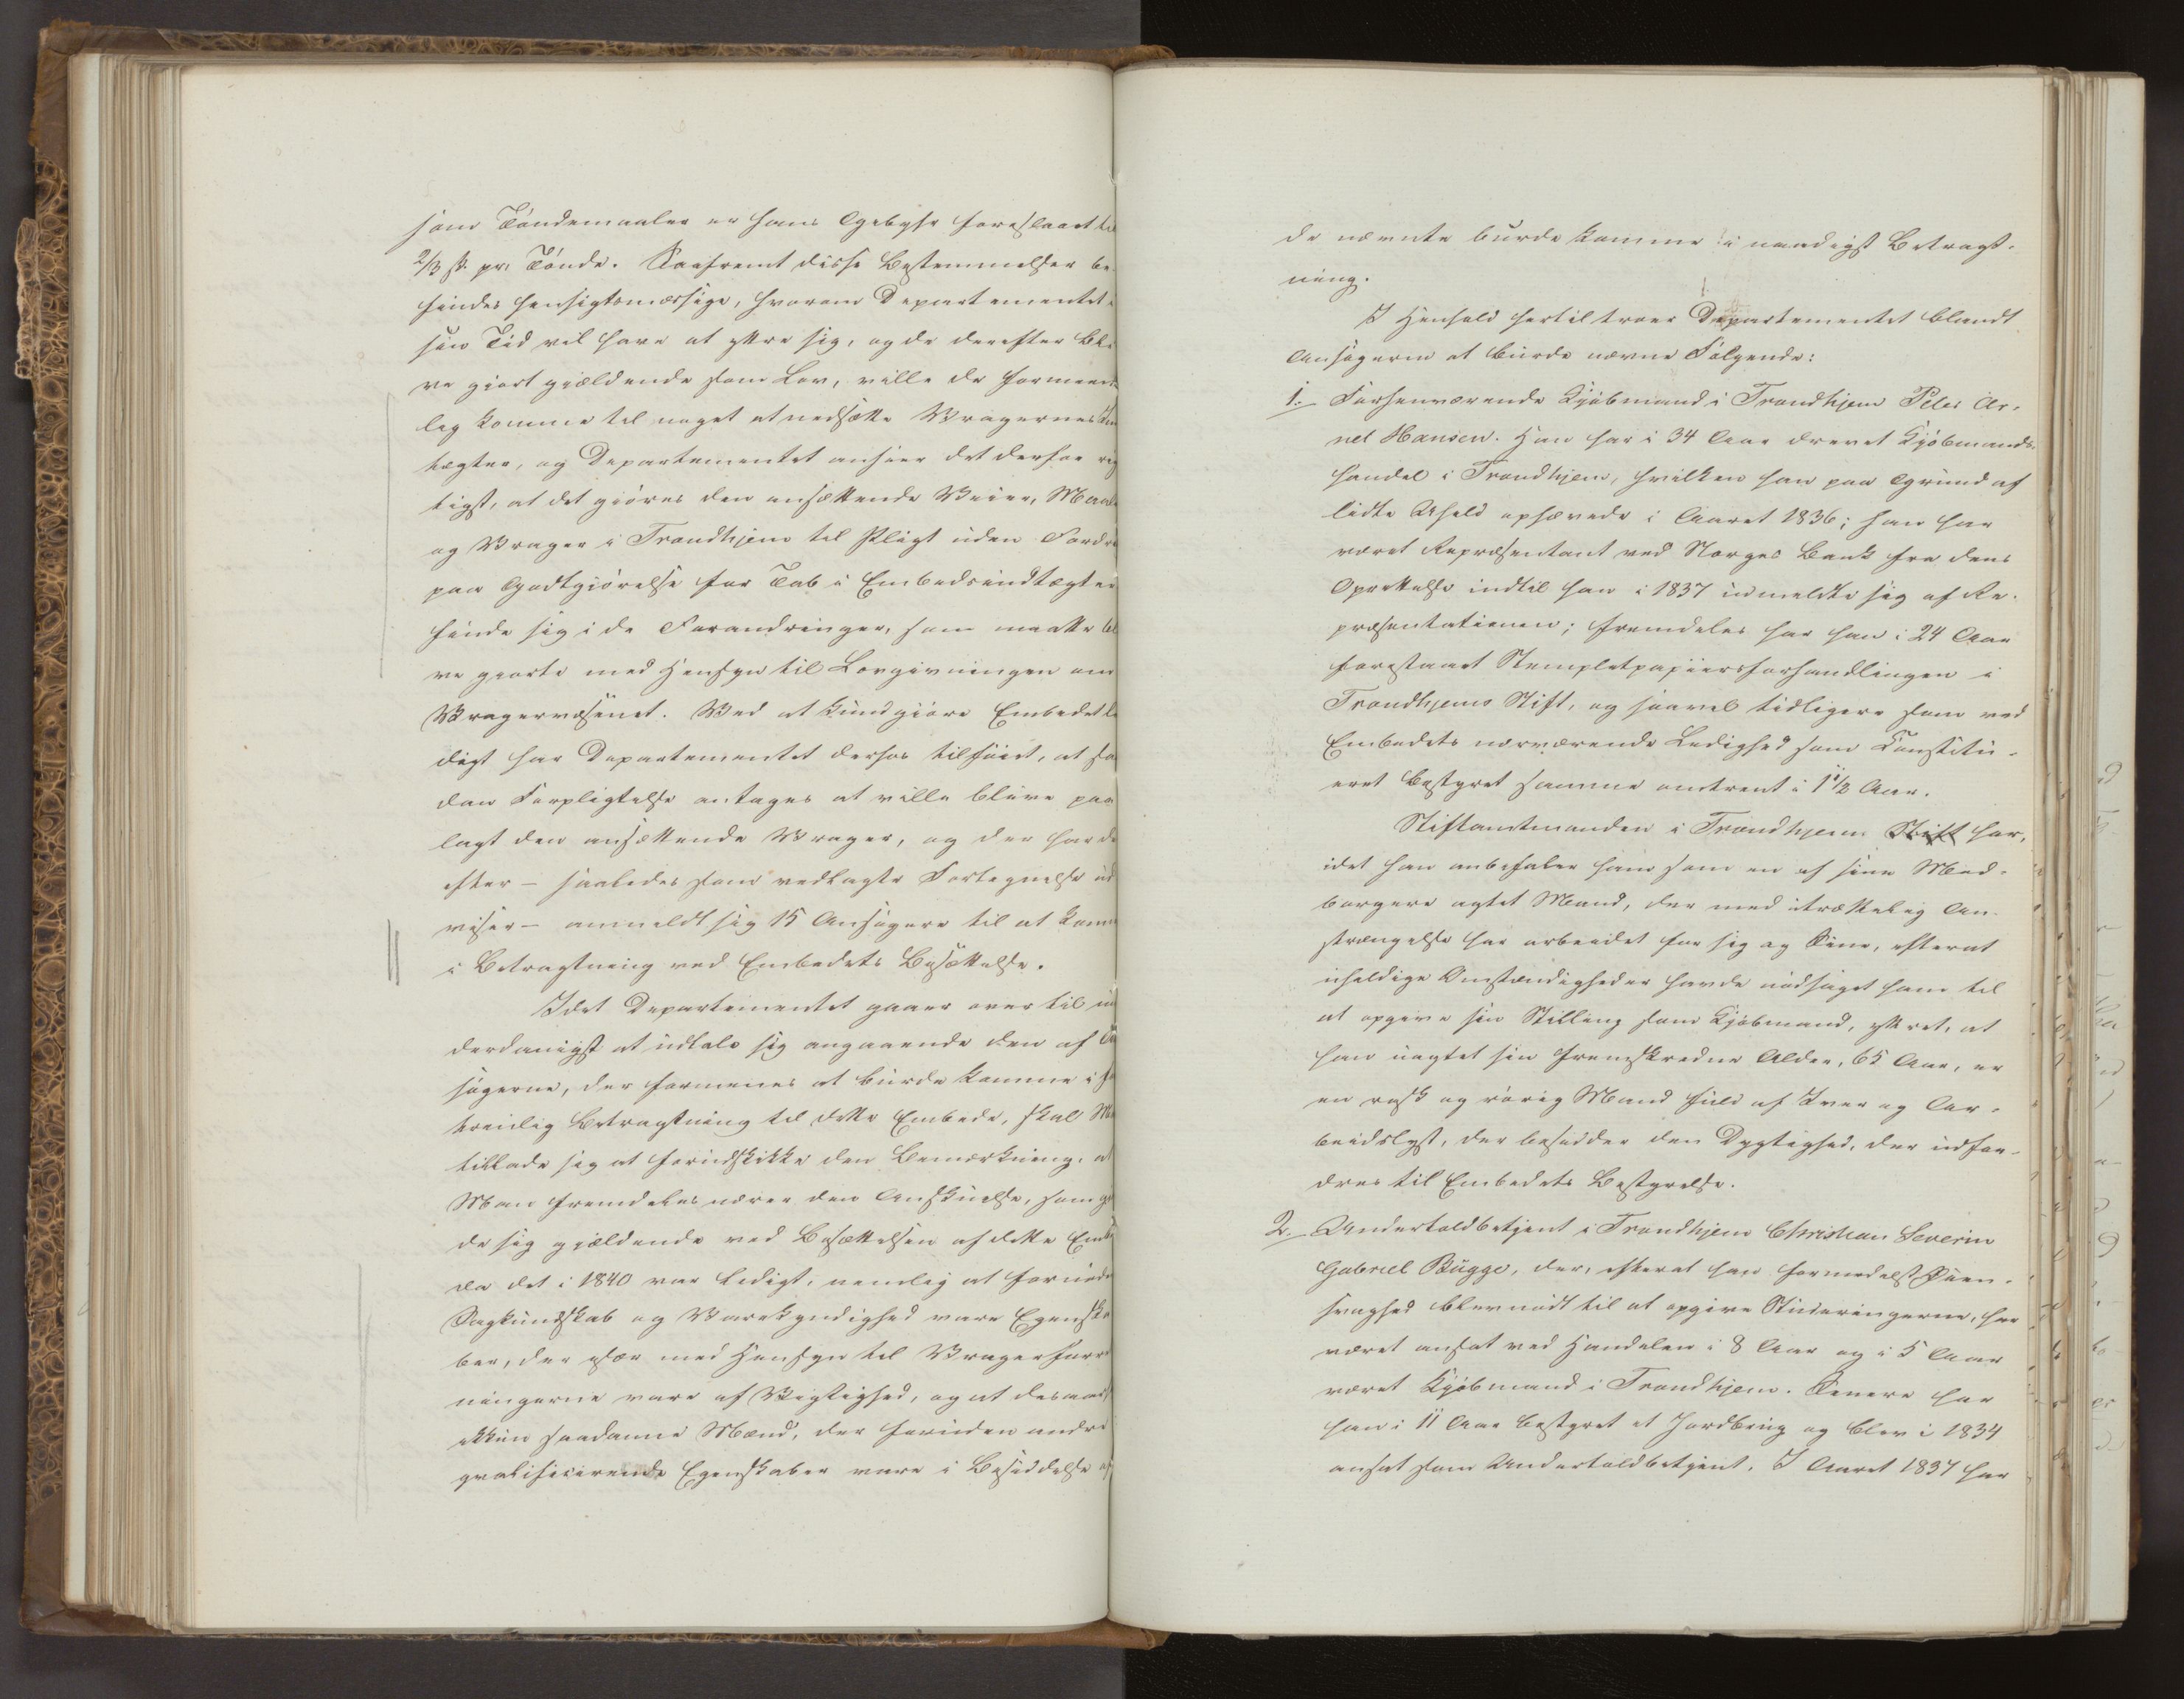 som Tøndemaaler er hans Gebyhr foreslaaet til
2/3 ß pr. Tønde. Saafremt disse Bestemmelser be-
findes hensigtsmæssige, hvorom Departementet i
sin Tid vil have at yttre sig, og de derefter bli-
ve gjort gjældende som Lov, ville de formeent-
lig komme til noget at nedsætte Vragernes Ind-
tægter, og Departementet anseer det derfor rig-
tigst, at det gjøres den ansættende Veier, Maaler
og Vrager i Trondhjem til Pligt uden Fordring
paa Godtgjørelse for Tab i Embedsindtægter
finde sig i de Forandringer, som maatte bli-
ve gjorte med Hensyn til Lovgivningen om
Vragervæsenet. Ved at kundgjøre Embedet le-
digt har Departementet derhos tilføiet, at saa-
dan Forpligtelse antages at ville blive paa-
lagt den ansættende Vrager, og der har der-
efter – saaledes som vedlagte Fortegnelse ud-
viser – anmeldt sig 15 Ansøgere til at komme
i Betragtning ved Embedets Besættelse.
Idet Departementet gaaer over til un-
derdanigst at udtale sig angaaende den af An-
søgerne, der formenes at burde komme i for-
trinlig Betragtning til dette Embede, skal Man
tillade sig at forudskikke den Bemærkning, at
Man fremdeles nærer den Anskuelse, som gjor-
de sig gjældende ved Besættelsen af dette Embede
da det i 1840 var ledigt, nemlig at foruden
Sagkundskab og Varekyndighed vare Egenska-
ber, der især med Hensyn til Vragerforret-
ningerne vare af Vigtighed, og at desaarsag
ekkun saadanne Mænd, der foruden andre
qvalificerende Egenskaber vare i Besiddelse af
de nævnte burde komme i naadigst Betragt-
ning.
I Henhold hertil troer Departementet blandt
Ansøgerne at burde nævne Følgende:
1. Forhenværende Kjøbmand i Trondhjem Peter Ar-
net Hansen. Han har i 34 Aar drevet Kjøbmands-
handel i Trondhjem, hvilken han paa Grund af
lidte Uheld ophævede i Aaret 1836; han har
været Repræsentant ved Norges Bank fra dens
Oprettelse indtil han i 1837 udmeldte sig af Re-
præsentationen; fremdeles har han i 24 Aar
forestaaet Stempletpapiirsforhandlingen i
Trondhjems Stift, og saavel tidligere som ved
Embedets nærværende Ledighed som Constitu-
eret bestyret samme omtrent i 1 1/2 Aar.
Stiftamtmanden i Trondhjem Stift har,
idet han anbefaler ham som en af sine Med-
borgere agtet Mand, der med utrættelig An-
strængelse har arbeidet for sig og Sine, efterat
uheldige Omstændigheder havde nødsaget ham til
at opgive sin Stilling som Kjøbmand, yttret, at
han uagtet sin fremskredne Alder, 65 Aar, er
en rask og rørig Mand fuld af Iver og Ar-
beidslyst, der besidder den Dygtighed, der udfor-
dres til Embedets Bestyrelse.
2. Undertoldbetjent i Trondhjem Christian Severin
Gabriel Bugge, der, efterat han formedelst Øien-
svaghed blev nødt til at opgive Studeringerne, har
været ansat ved Handelen i 8 Aar og i 5 Aar
været Kjøbmand i Trondhjem. Senere har
han i 11 Aar bestyret et Jordbrug og blev i 1834
ansat som Undertoldbetjent. I Aaret 1837 har